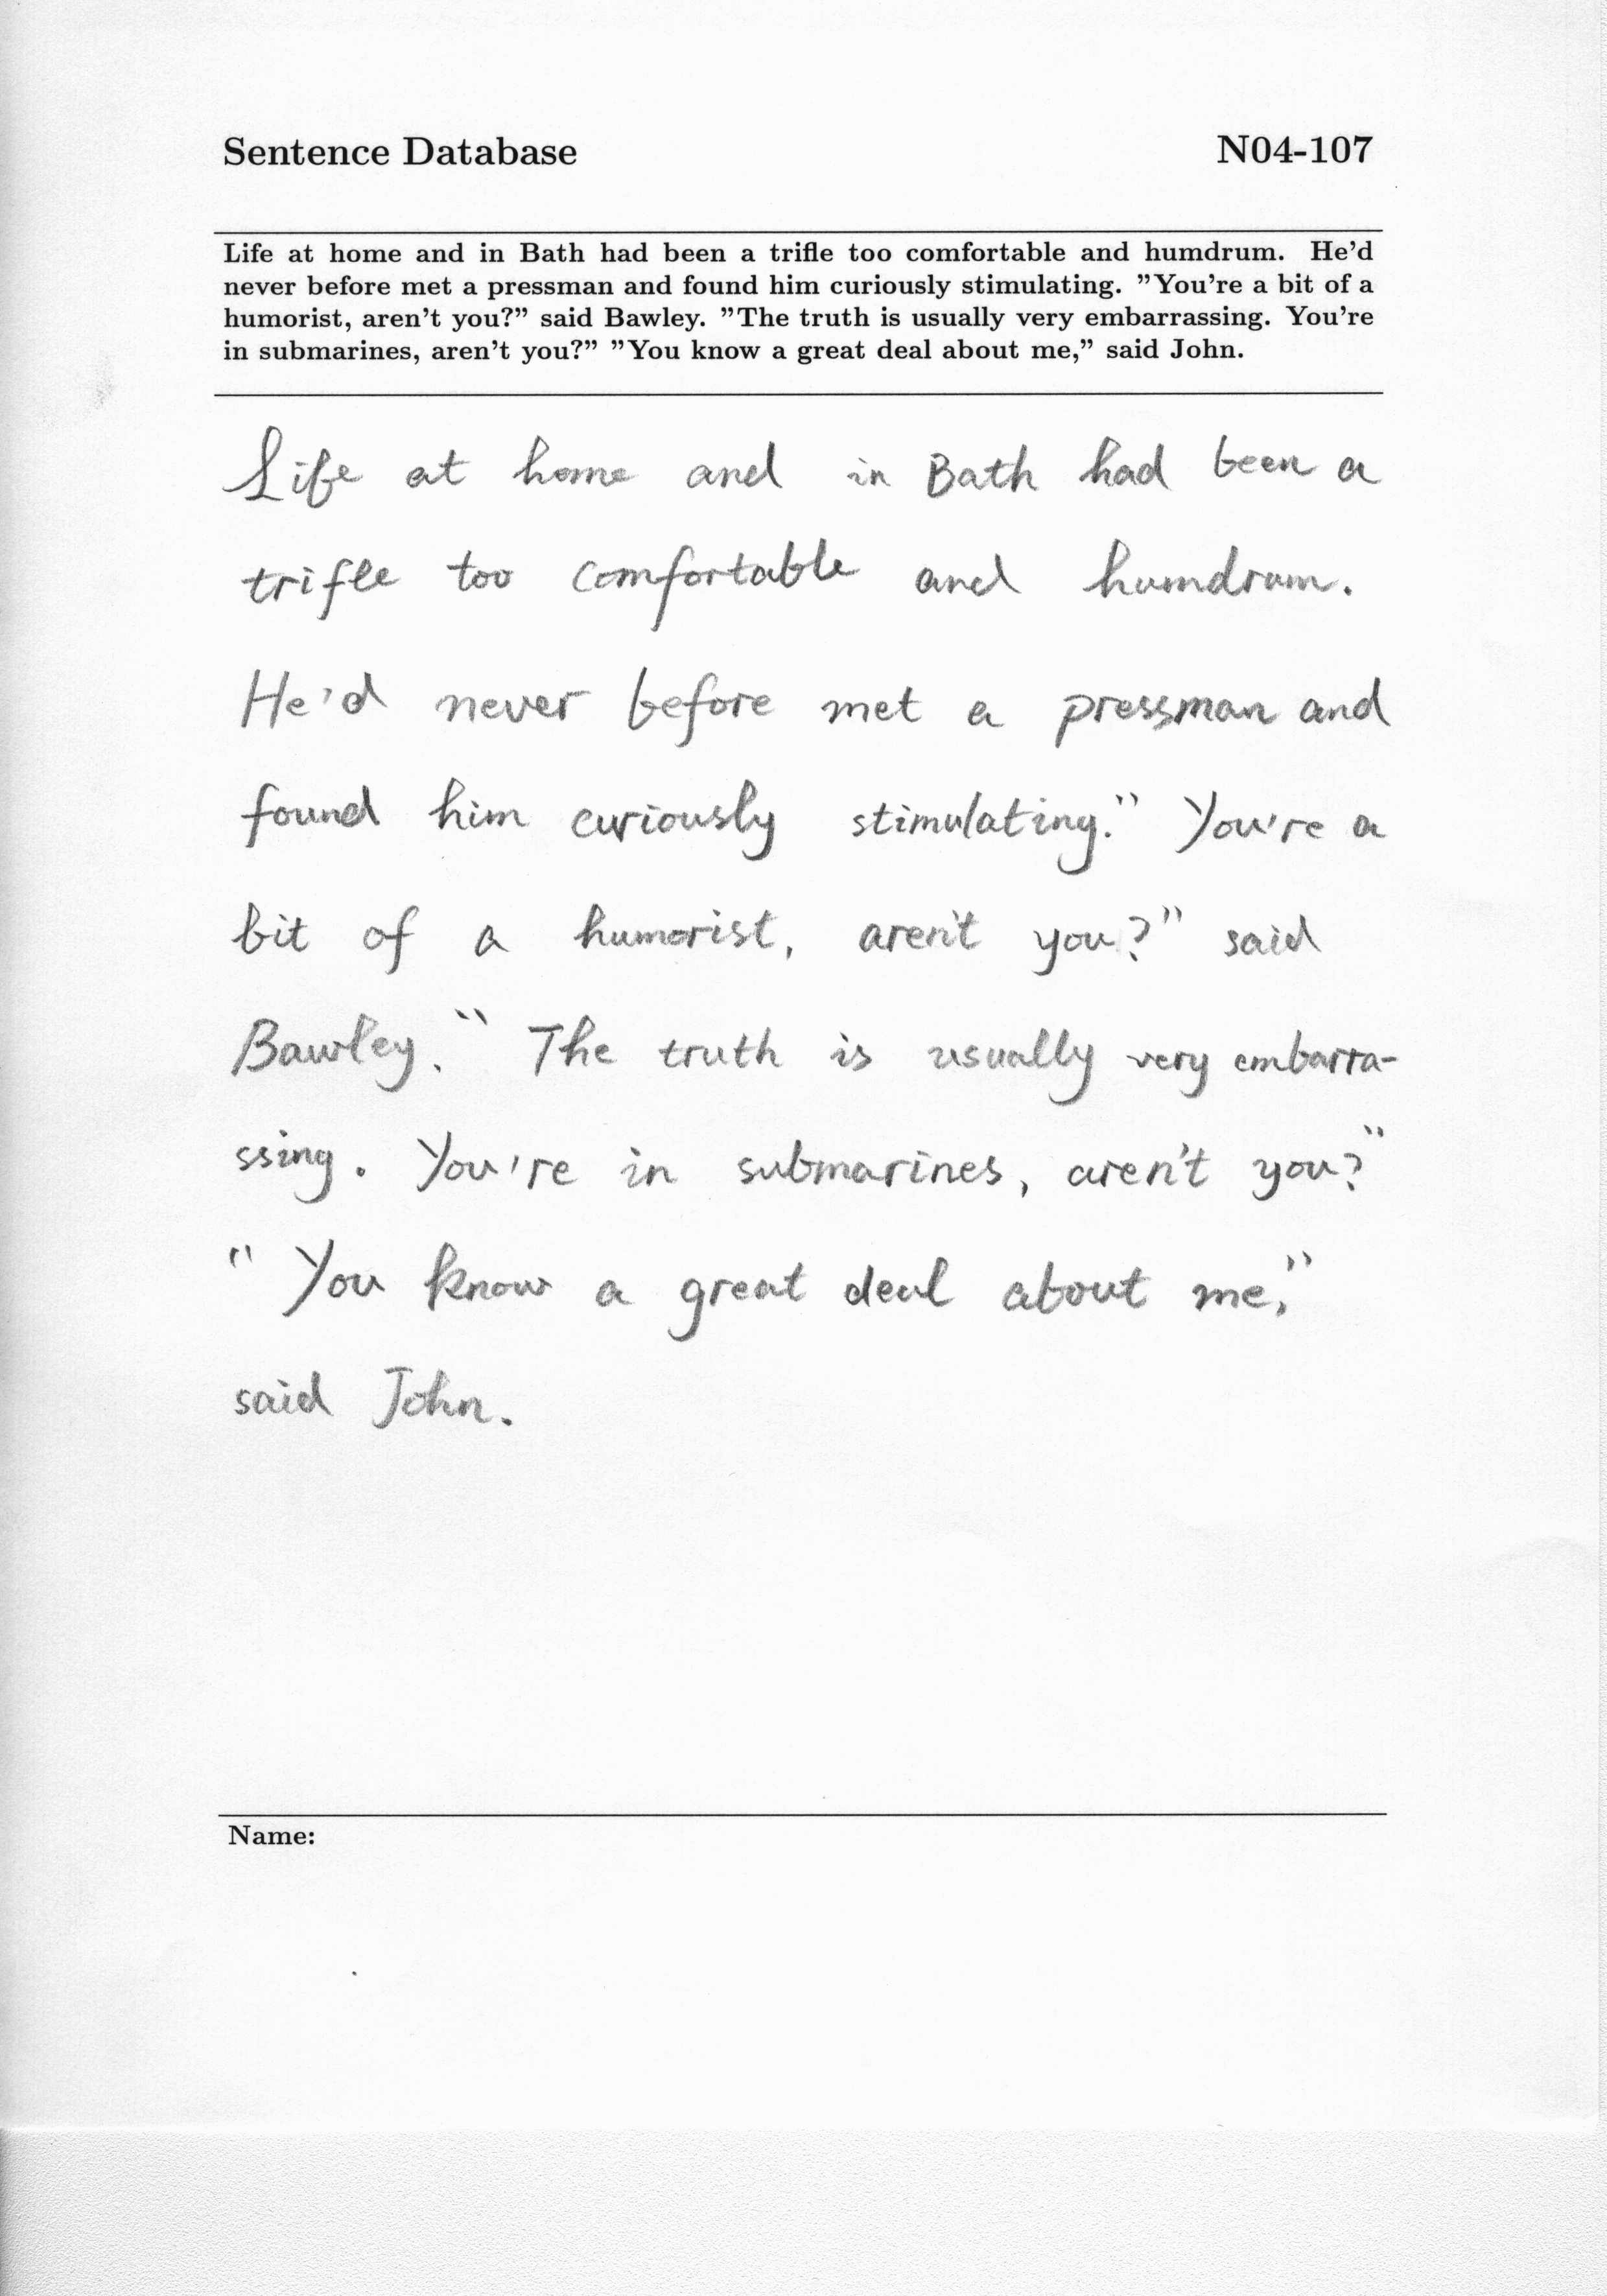 Sentence Database N04-107
Life at home and in Bath had been a trifle too comfortable and humdrum. He'd
never before met a pressman and found him curiously stimulating. "You're a bit of a
humorist, aren't you?" said Bawley. "The truth is usually very embarrassing. You're
in submarines, aren't you?" "You know a great deal about me," said John.
Life at home and in Bath had been a
trifle too comfortable and humdrum.
He'd never before met a pressman and
found him curiously stimulating." You're a
bit of a humorist, aren't you?" said
Bawley." The truth is usually very embarra-
ssing. You're in submarines, aren't you?"
" You know a great deal about me,"
said John.
Name: